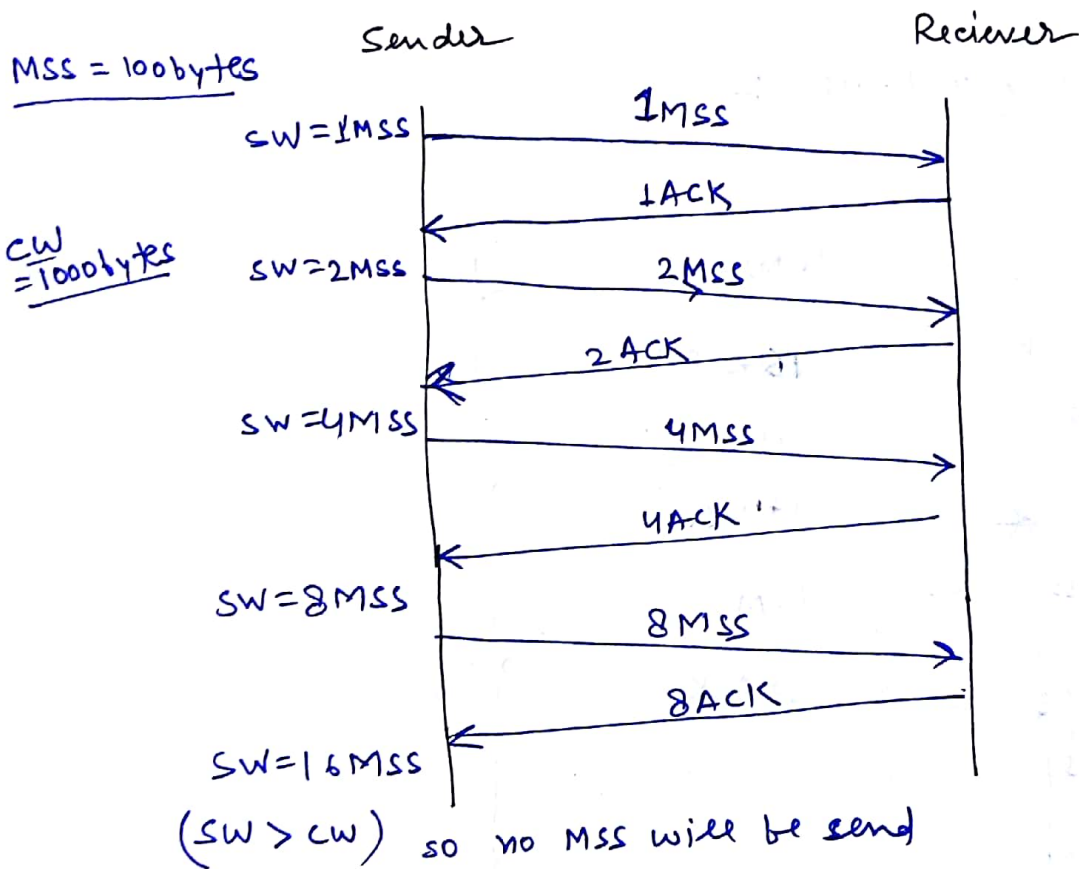 Sender
Reciever
MSS = 100bytes
SW=1MSS
1MSS
1ACK
CW
=1000bytes
SW=2MSS
2MSS
2 ACK
SW=4MSS
4MSS
4ACK
SW=8MSS
8MSS
8ACK
SW=16MSS
(SW > CW) so no MSS will be send